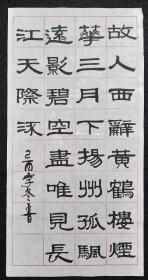 故人西辭黃鶴樓煙
華三月下揚州孤颿
遠影碧空盡唯見長
江天際流
酉冬書